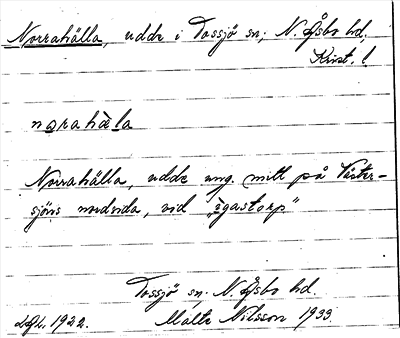 Norrahälla, udde i Tossjö sn; N. Åsbo hd.
Krist. l
norahäla
Norrahälla, udde ung. mitt på Väster-
sjöns nordsida, vid "Ågastorp"
Tossjö sn; N. Åsbo hd
1922. Malte Nilsson 1933